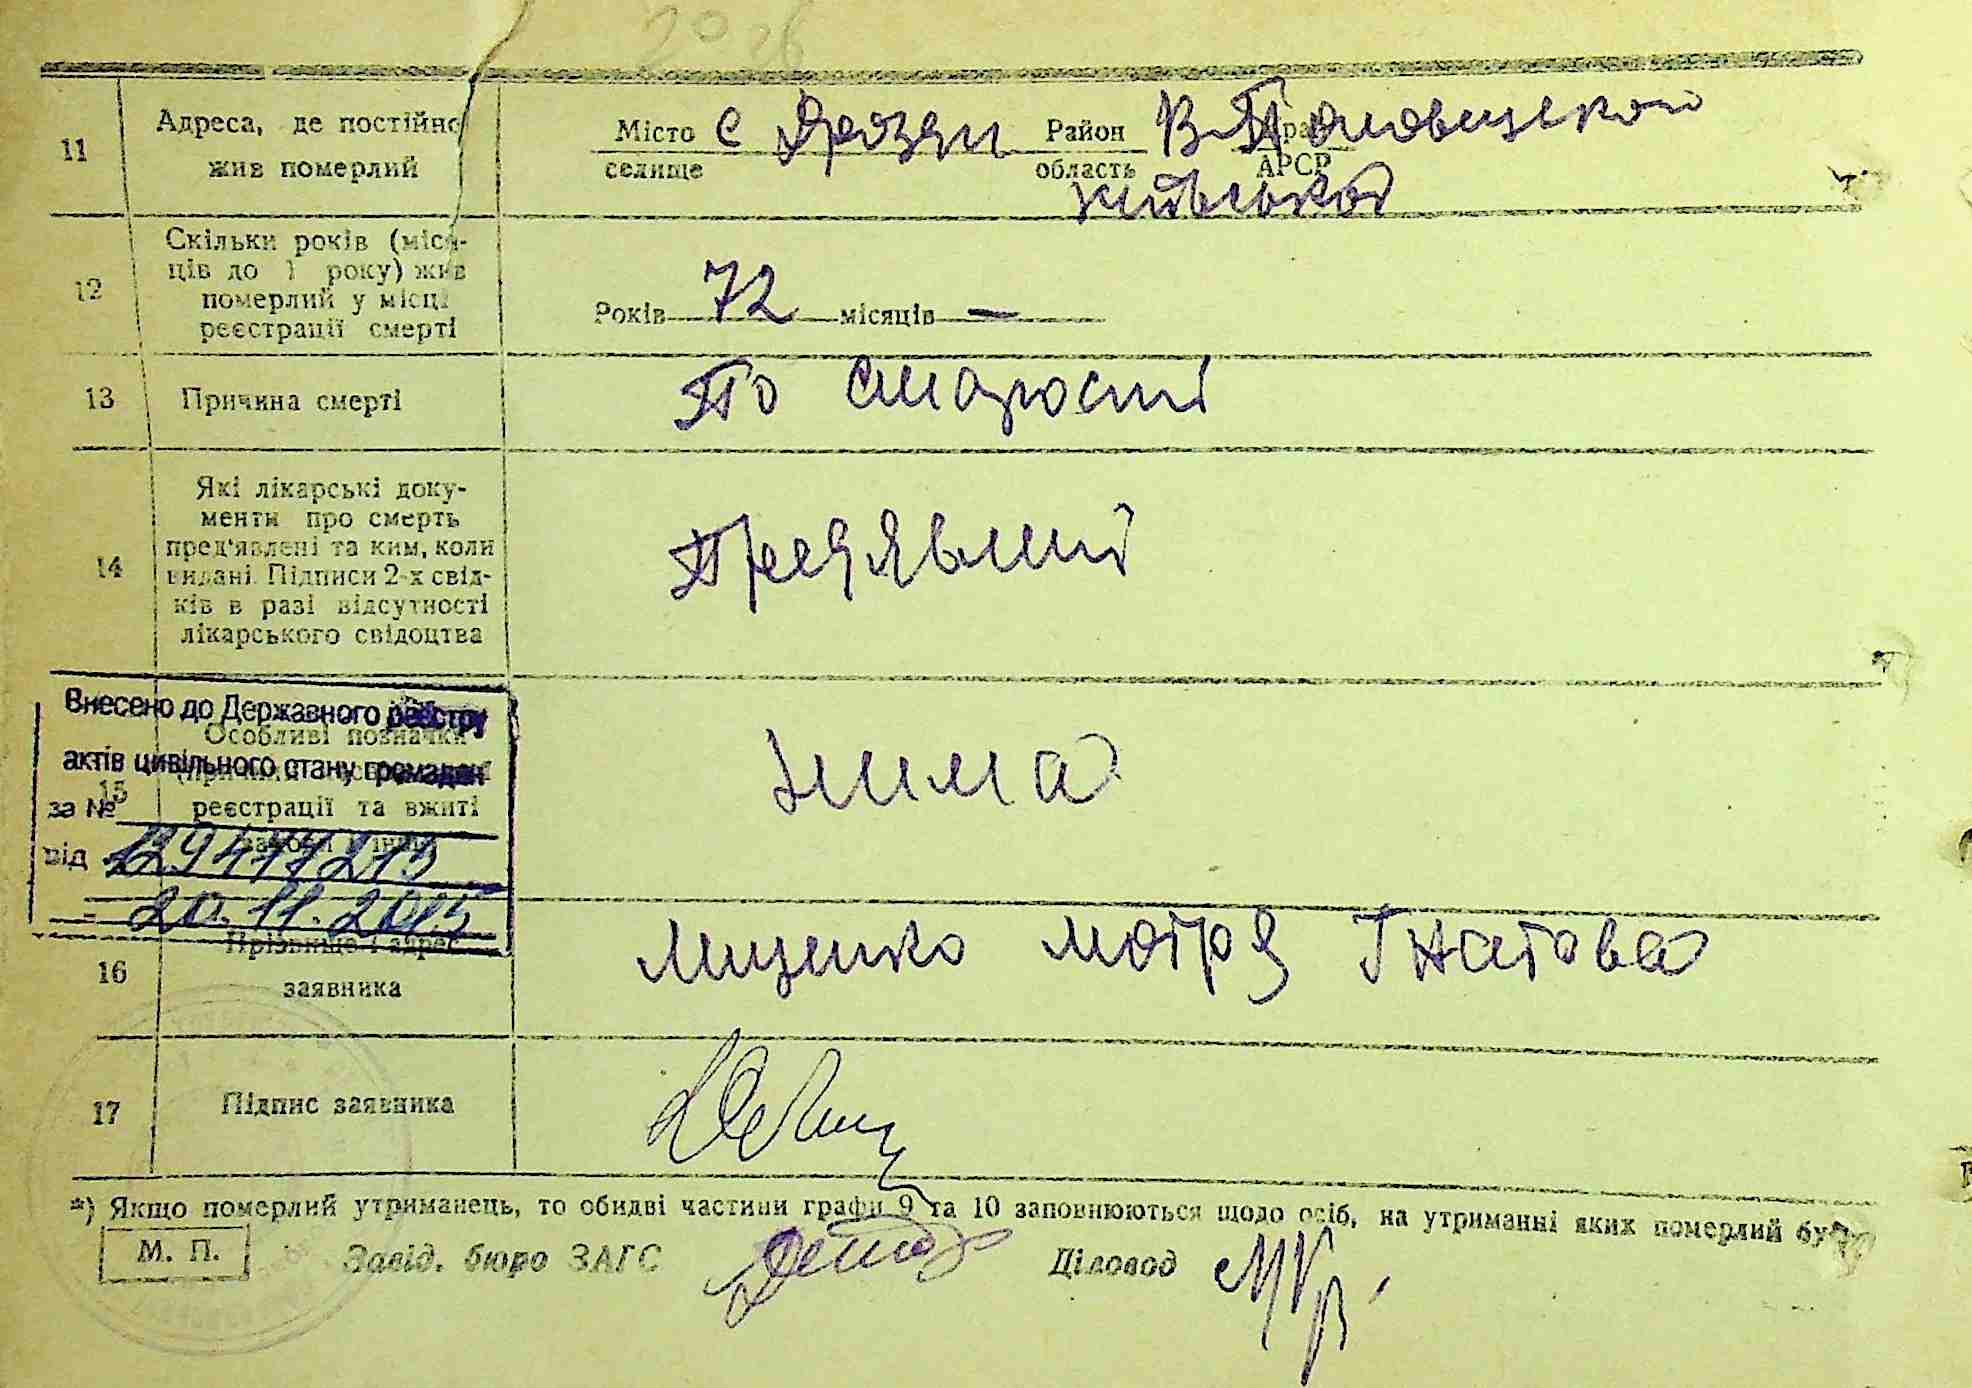 11 Адреса, де постійно жив померлий
Місто селище с Район область В Край АРСР
київської
12 Скільки років (міся-
ців до 1 року) жив
померлий у місці
реєстрації смерті
Років 72 місяців —
13 Причина смерті По старості
14 Які лікарські доку-
менти про смерть
пред'явлені та ким, коли
видані. Підписи 2-х свід-
ків в разі відсутності
лікарського свідоцтва
Внесено до Державного реєстру
актів цивільного стану громадян
за № 12947721
від 20.11.2015
15 Особливі позначки
реєстрації та вжиті
нима
16 Прізвище і адрес
заявника
Мищенко Мотря Гнатова
17 Підпис заявника
*) Якщо померлий утриманець, то обидві частини графи 9 та 10 заповнюються щодо осіб, на утриманні яких померлий був
М. П. Завід. бюро ЗАГС Діловод